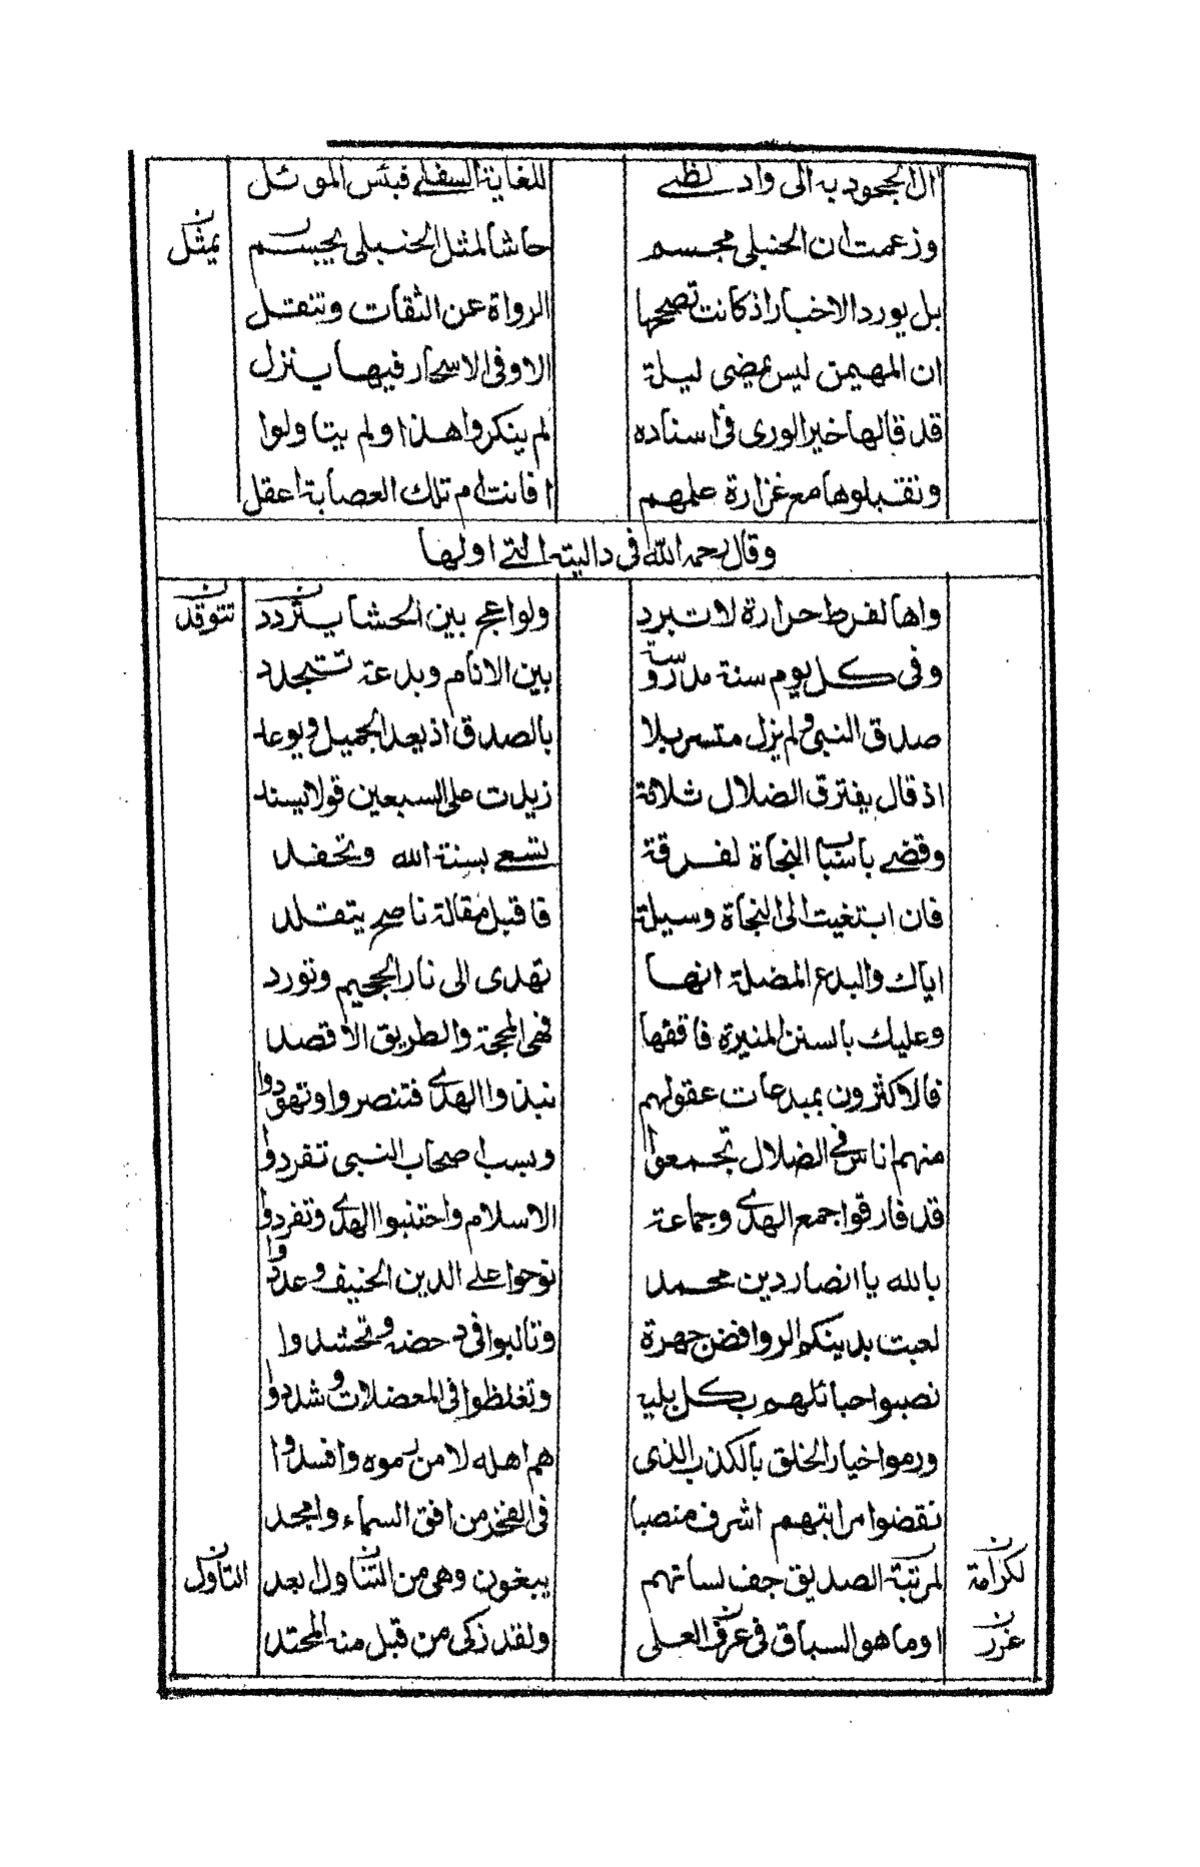 ال الجحود به الى وادى لظى للغاية السفلى فبئس الموئل
وزعمت ان الحنبلى مجسم حاشا لمثل الحنبلى يجسم يمثل ن
بل يورد الاخبار اذ كانت تصححها الرواة عن الثقات وتنقل
ان المهيمن ليس يمضى ليلة الا وفى الاسحار فيها ينزل
قد قالها خير الورى فى اسناده لم ينكروا هذا ولم يتاولوا
ونقبلوها مع غزارة علمهم افانت ام تلك العصابة اعقل
وقال رحمه الله فى داليته التى اولها
واها لفرط حرارة لا تبرد ولواعج بين الحشا يتردد تتوقد ن
وفى كل يوم سنة مدروسة بين الانام وبدعة تتجدد
صدق النبى ولم يزل متسربلا بالصدق اذ يعد الجميل ويوعد
اذ قال يفترق الضلال ثلاثة زيدت على السبعين قولا يسند
وقضى باسباب النجاة لفرقة تسعى بسنة الله وتحفد
فان ابتغيت الى النجاة وسيلة فاقبل مقالة ناصح يتقلد
اياك والبدع المضلة انها تهدى الى نار الجحيم وتورد
وعليك بالسنن المنيرة فاقفها فهى المحجة والطريق الاقصد
فالاكثرون بمبدعات عقولهم نبذوا الهدى فتنصروا وتهودوا
منهم اناس فى الضلال تجمعوا وبسب اصحاب النبى تفردوا
قد فارقوا جمع الهدى وجماعة الاسلام واجتنبوا الهدى وتفردوا
بالله يا انصار دين محمد نوحوا على الدين الحنيف وعددوا
لعبت بدينكم الروافض جهرة وتالبوا فى دحضه وتحشدوا
نصبوا حبائلهم بكل بلية وتغلظوا فى المعضلات وشددوا
ورموا خيار الخلق بالكذب الذى هم اهله لا من رموه وافسدوا
نقضوا مراتبهم اشرف منصبا فى الفخر من افق السماء وامجد
لكرامة ن لمرتبة الصديق جف لسانهم يبغون وهى من التناول ابعد التأول ن
غرر ن اوما هو السباق فى غرف العلى ولقد زكى من قبل منه المحتد